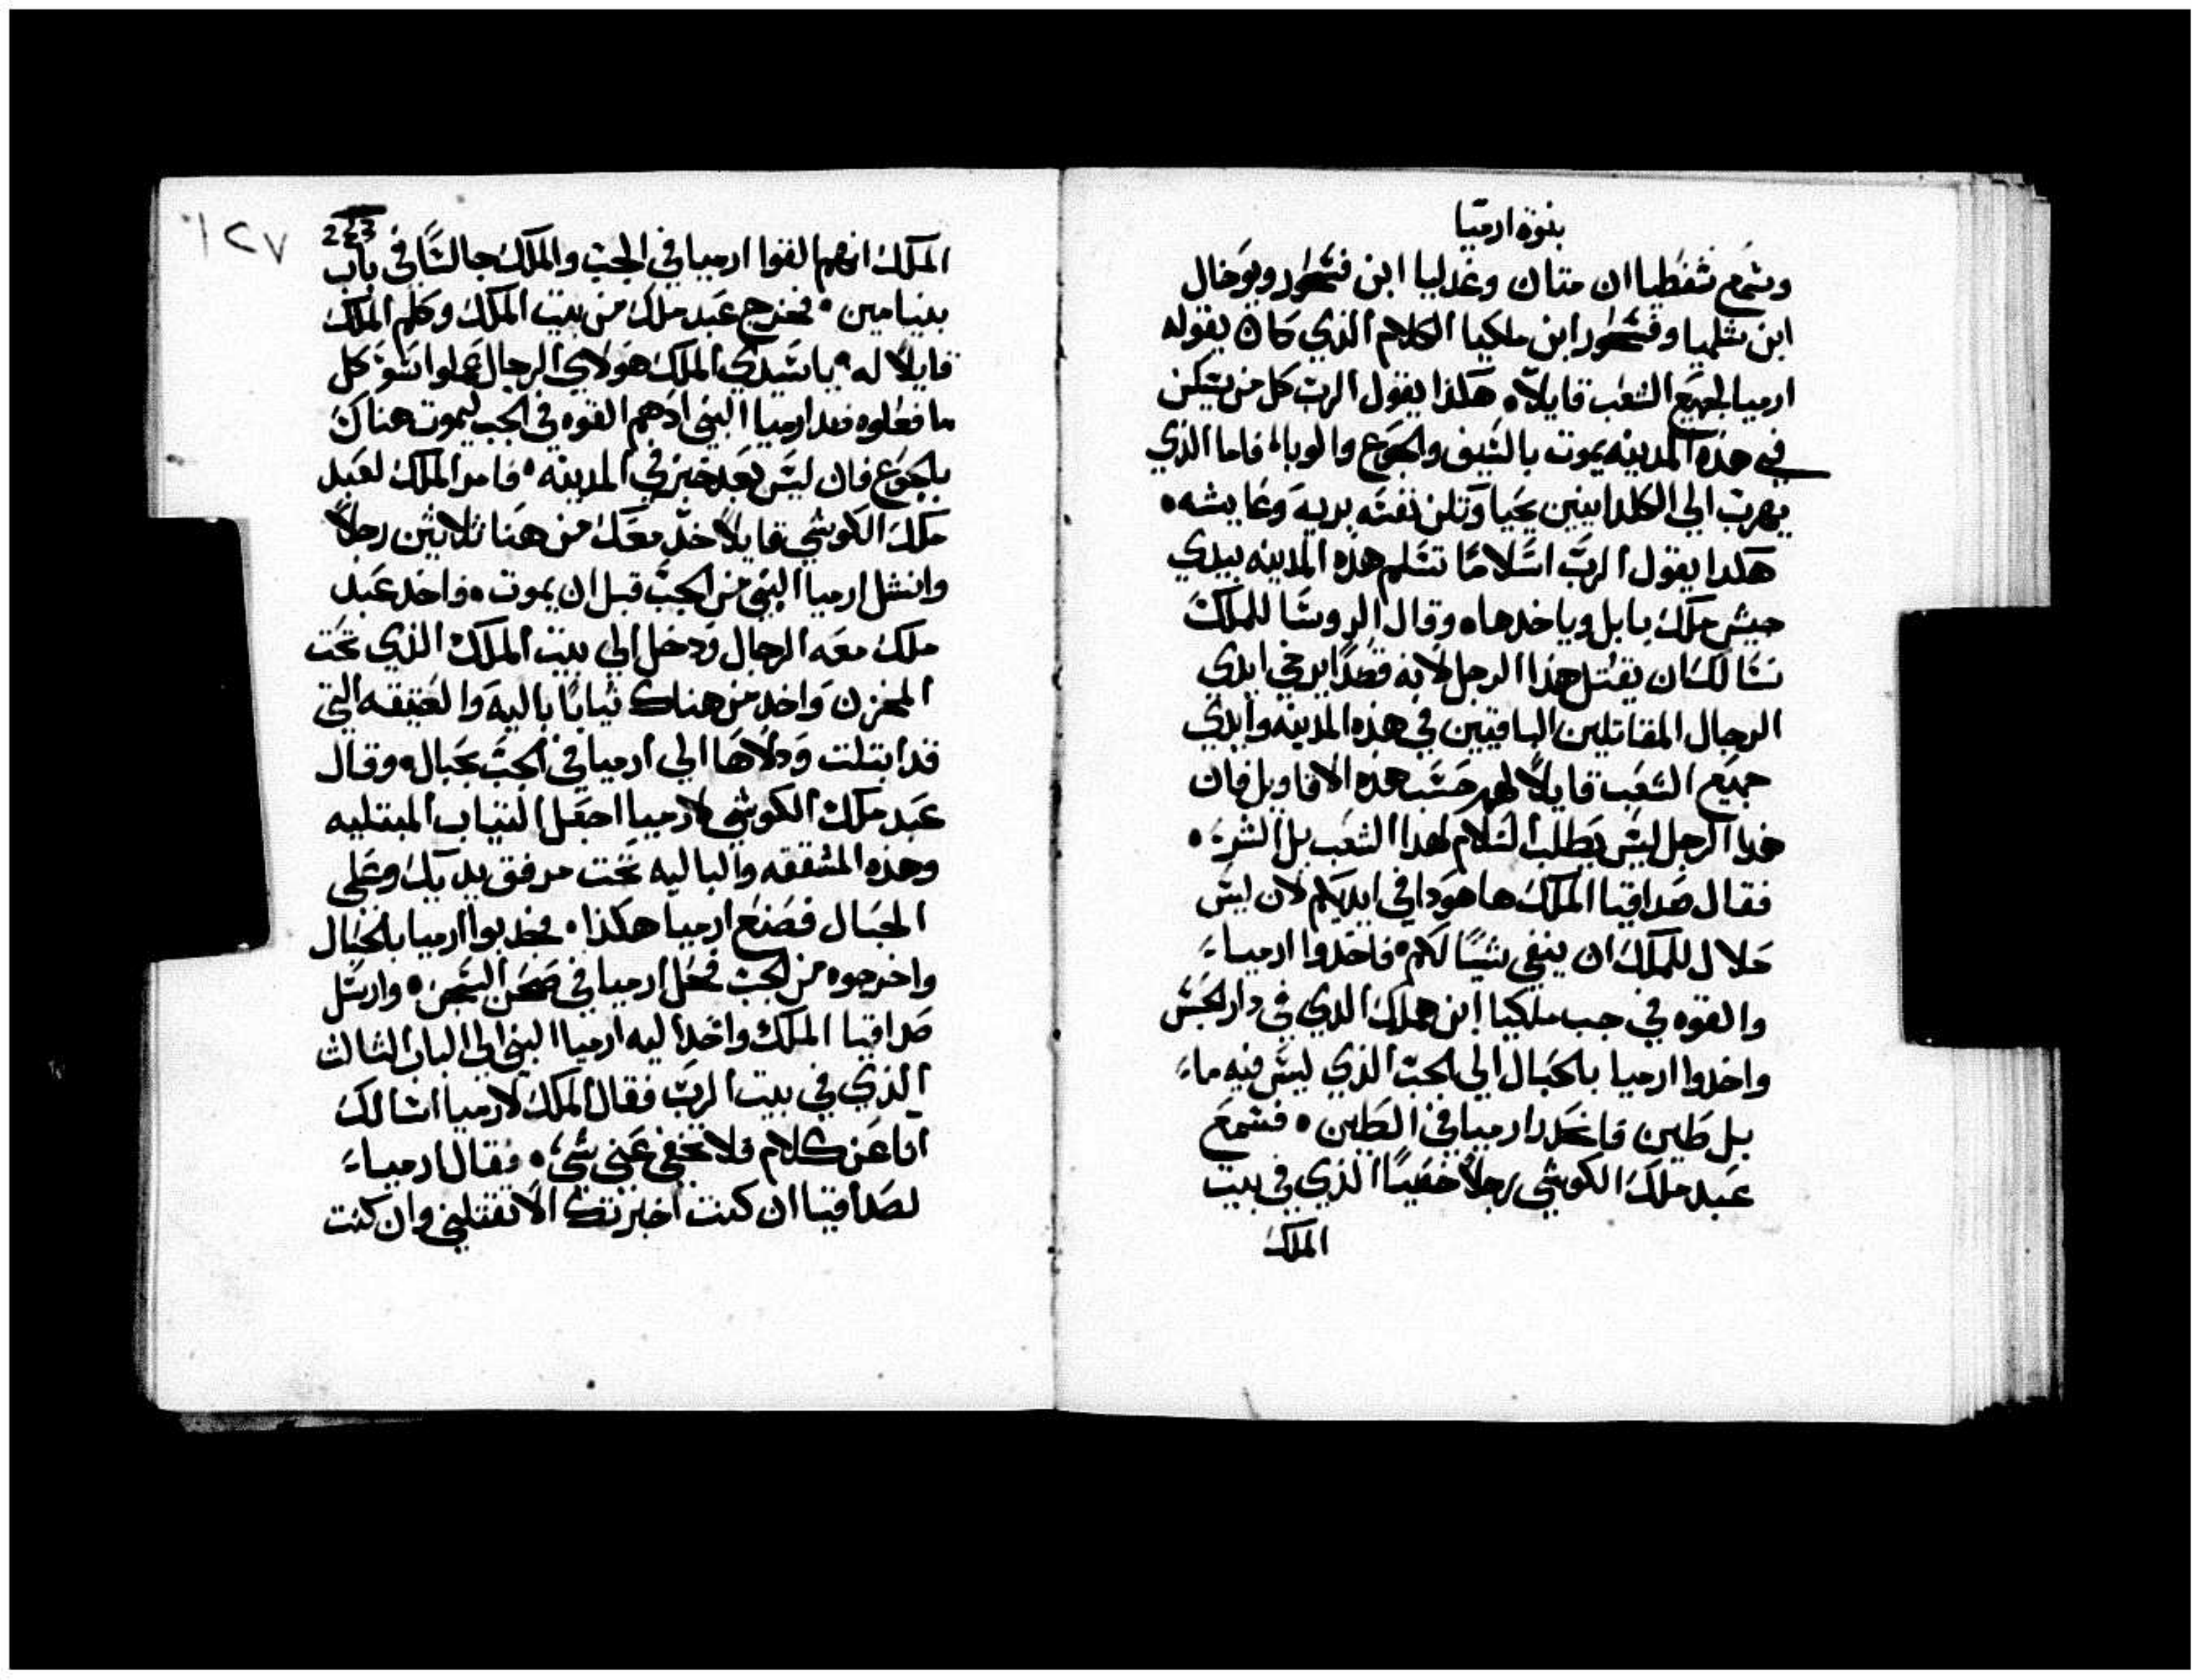 بنوة ارميا
وسمع شفطيا ان متان وغدليا ابن فشحور ويوخال
ابن شلميا وفشحور ابن ملكيا الكلام الذي كان يقوله
ارميا لجميع الشعب قايلاً هكذا يقول الرب كل من يسكن
في هذه المدينه يموت بالسيف والجوع والوبا فاما الذي
يهرب الي الكلدانيين يحيا وتكن نفسه بريه وعايشه
هكدا يقول الرب اسلاما تسلم هذه المدينه بيدي
جيش ملك بابل وياخدها وقال الروسا للملك
نسالك ان يقتل هذا الرجل لانه قصداً يرخي ايدي
الرجال المقاتلين الباقيين في هذه المدينه وايدي
جميع الشعب قايلاً لهم حسب هده الاقاويل فان
هدا الرجل ليس يطلب السلام لهدا الشعب بل الشر
فقال صداقيا الملك ها هودا في ايديكم لان ليس
حلال للملك ان ينفي شيئاً لكم فاخدوا ارميا
والقوه في جب ملكيا ابن هملك الدي في دار الحبس
واخدوا ارميا بالحبال الي الجب الذي ليس فيه ماء
بل طين فانحدر ارميا في الطين فسمع
عبد ملك الكوشي رجلاً خصياً الذي في بيت
الملك
٦٢٧
223
الملك انهم القوا ارميا في الجب والملك جالساً في باب
بنيامين فخرج عبد ملك من بيت الملك وكلم الملك
قايلاً له يا سيدي الملك هولاي الرجال عملوا سو كل
ما فعلوه ضد ارميا النبي ادهم القوه في الجب ليموت هناك
بالجوع فان ليس بعد خبز في المدينه فامر الملك لعبد
ملك الكوشي قايلاً خد معك من هنا ثلاثين رجلاً
وانشل ارميا النبي من الجب قبل ان يموت واخد عبد
ملك معه الرجال ودخل الي بيت الملك الذي تحت
المخزن واخد من هناك ثياباً باليه والعتيقه التي
قد ابتلت ودلاها الي ارميا في الجب بحبال وقال
عبد ملك الكوشي لارميا اجعل الثياب المبتليه
وهذه المشققه والباليه تحت مرفق يديك وعلي
الحبال فصنع ارميا هكذا فجدبوا ارميا بالحبال
واخرجوه من الجب فحل ارميا في صحن السجن وارسل
صداقيا الملك واخد اليه ارميا النبي الي الباب الثالث
الذي في بيت الرب فقال الملك لارميا اسالك
انا عن كلام فلا تخفي عني شيء فقال ارميا
لصداقيا ان كنت اخبرتك الا تقتلني وان كنت